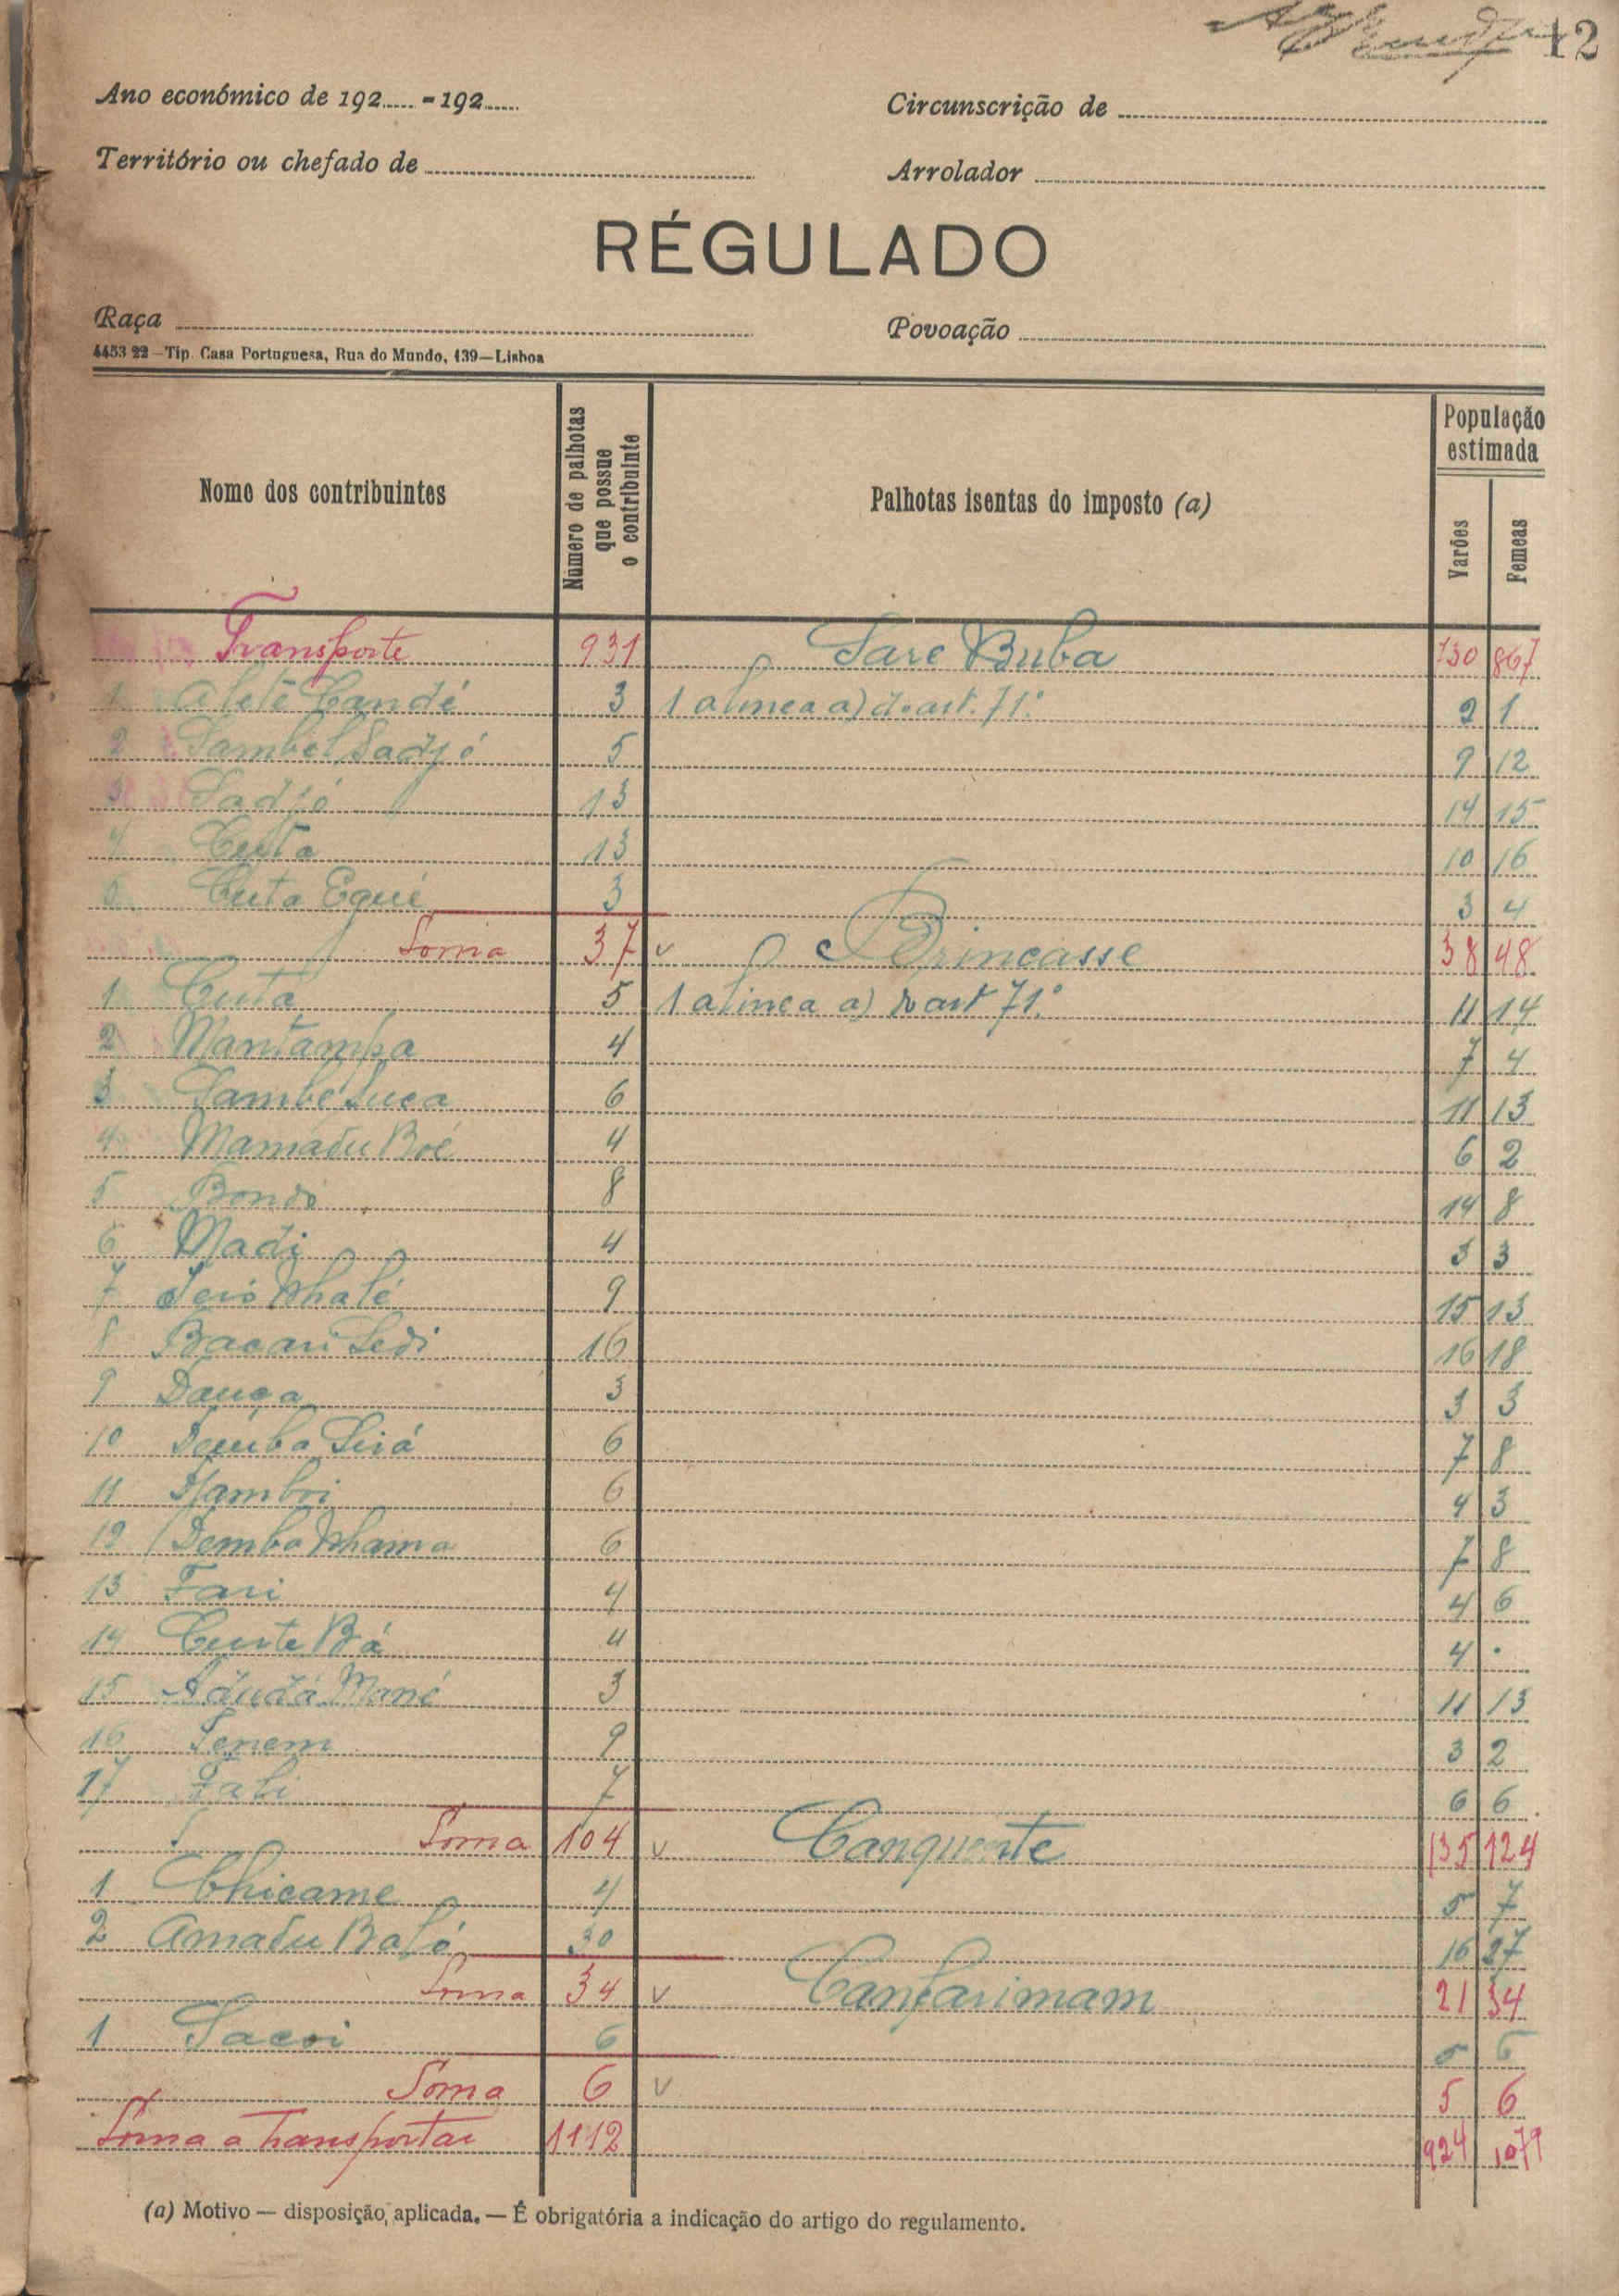 12
Ano económico de 192...... - 192......
Circunscrição de
Território ou chefado de
Arrolador
RÉGULADO
Raça
Povoação
4453 22 — Tip. Casa Portuguesa, Rua do Mundo, 139 — Lisboa
Nome dos contribuintes Número de palhotas que possue o contribuinte Palhotas isentas do imposto (a) População estimada Varões Femeas
Transporte 931 Sare Buba 730 867
1 Aleté Candé 3 1 alinea a) do art. 71.º 2 1
2 Sambel Sadjó 5 9 12
3 Sadjó 13 14 15
4 Cuta 13 10 16
5 Cuta Egué 3 3 4
Soma 37 v Brincasse 38 48
1 Cuta 5 1 alinea a) do art 71.º 11 14
2 Mantampa 4 7 4
3 Sambé Suca 6 11 13
4 Mamadu Boé 4 6 2
5 Bondo 8 14 8
6 Madi 4 3 3
7 9 15 13
8 Bacari Sedi 16 16 18
9 Dauça 3 3 3
10 Demba Sirá 6 7 8
11 6 4 3
12 Demba 6 7 8
13 Fari 4 4 6
14 Bá 4 4 .
15 Mané 3 11 13
16 Senem 9 3 2
17 Fali 7 6 6
Soma 104 v Canquente 135 124
1 Chicame 4 5 7
2 Amadu Baló 30 16 27
Soma 34 v Canfarimam 21 34
1 Sacoi 6 5 6
Soma 6 v 5 6
Soma a transportar 1112 924 1079
(a) Motivo — disposição aplicada. — É obrigatória a indicação do artigo do regulamento.